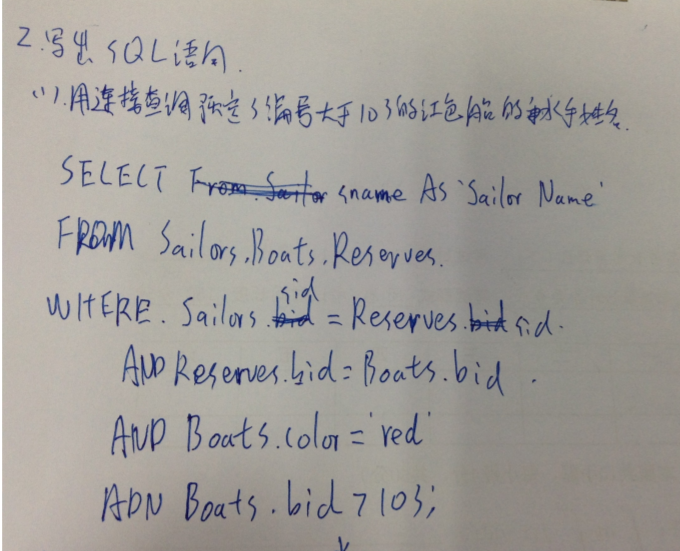 2.写出SQL语句.
(1).用连接查询预定了编号大于103的红色船的水手姓名.
SELECT From Sailor sname As 'Sailor Name'
FROM Sailors,Boats,Reserves.
WHERE. Sailors.bid sid = Reserves.bid sid.
AND Reserves.bid = Boats.bid.
AND Boats.color = 'red'
ADN Boats.bid > 103;